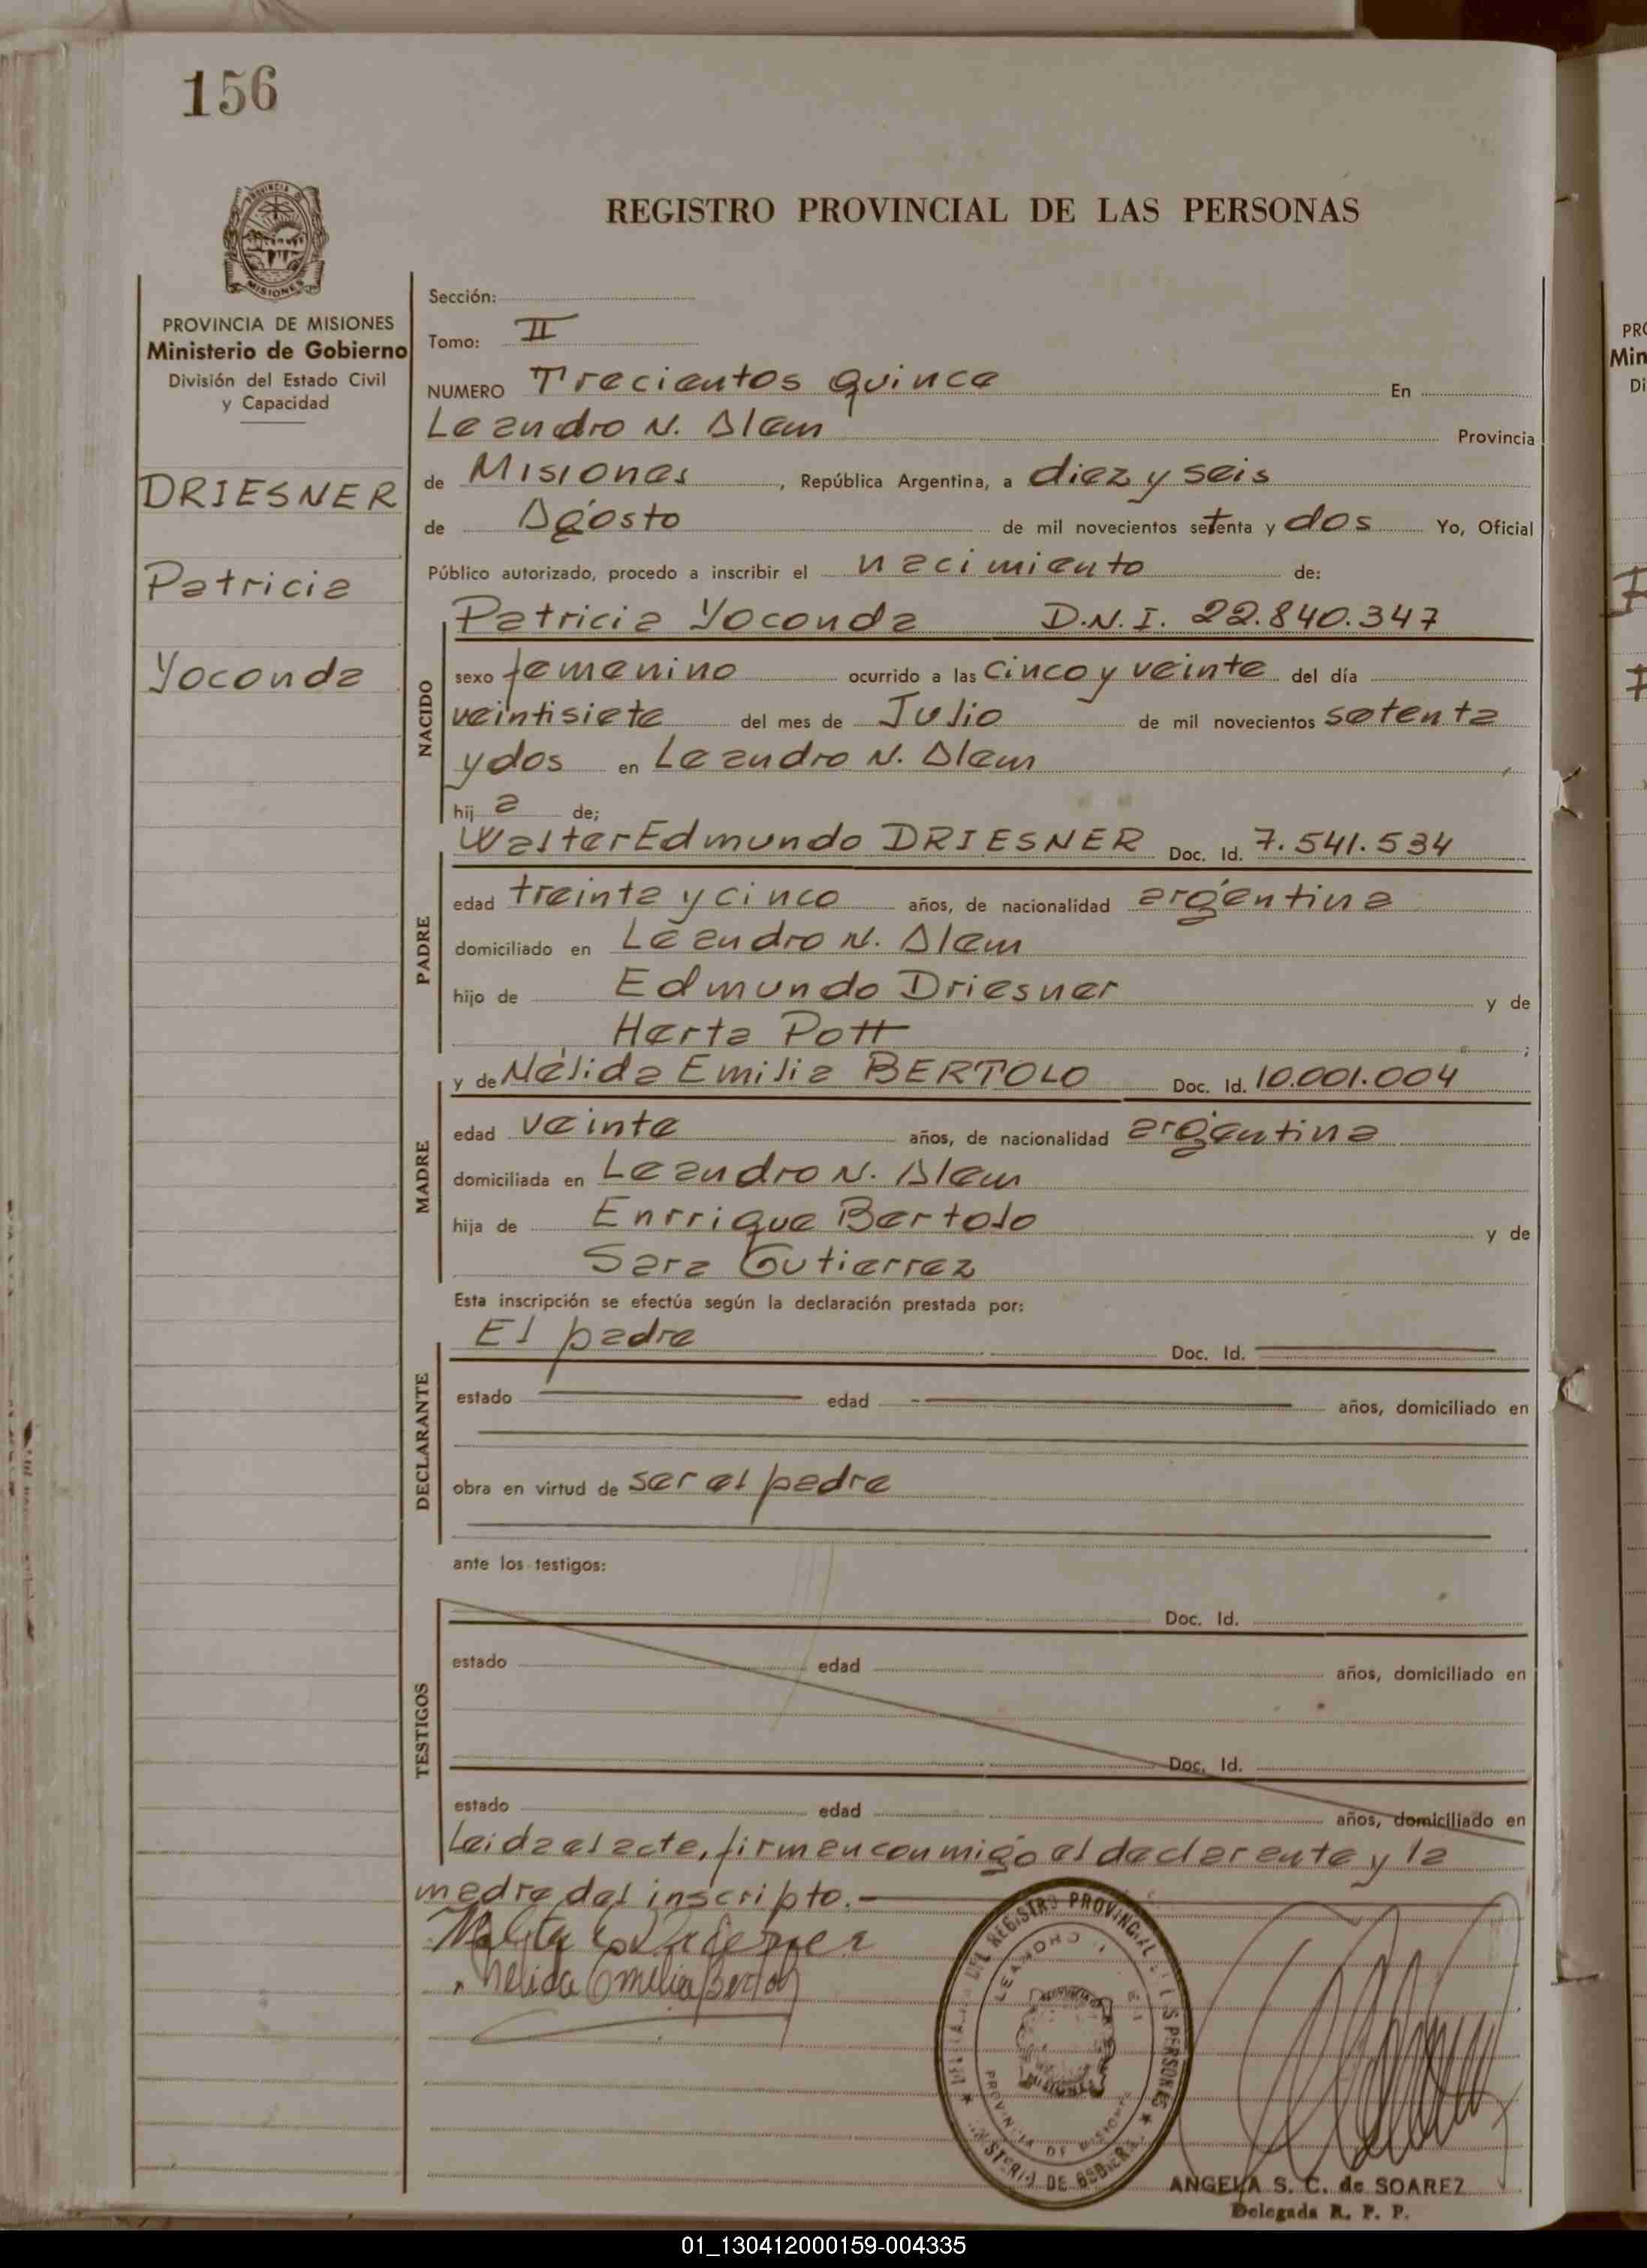 156
REGISTRO PROVINCIAL DE LAS PERSONAS
MISIONES
PROVINCIA DE MISIONES
Ministerio de Gobierno
División del Estado Civil
y Capacidad
DRIESNER
Patricia
Yoconda
Sección:
Tomo: II
NUMERO Trecientos quince En
Leandro N. Alem Provincia
de Misiones, República Argentina, a diez y seis
de Agosto de mil novecientos setenta y dos Yo, Oficial
Público autorizado, procedo a inscribir el nacimiento de:
Patricia Yoconda D.N.I. 22.840.347
NACIDO
sexo femenino ocurrido a las cinco y veinte del día
veintisiete del mes de Julio de mil novecientos setenta
y dos en Leandro N. Alem
hij a de;
Walter Edmundo DRIESNER Doc. Id. 7.541.534
PADRE
edad treinta y cinco años, de nacionalidad argentina
domiciliado en Leandro N. Alem
hijo de Edmundo Driesner y de
Herta Pott ;
y de Nélida Emilia BERTOLO Doc. Id. 10.001.004
MADRE
edad veinte años, de nacionalidad argentina
domiciliada en Leandro N. Alem
hija de Enrrique Bertolo y de
Sara Gutierrez
Esta inscripción se efectúa según la declaración prestada por:
El padre Doc. Id.
DECLARANTE
estado edad años, domiciliado en
obra en virtud de ser el padre
ante los testigos:
Doc. Id.
TESTIGOS
estado edad años, domiciliado en
Doc. Id.
estado edad años, domiciliado en
Leida el acta, firman conmigo el declarante y la
madre del inscripto.-
Nelida Emilia Bertolo
DEL REGISTRO PROVINCIAL DE LAS PERSONAS
PROVINCIA DE MISIONES
MISIONES
MINISTERIO DE GOBIERNO
ANGELA S. C. de SOAREZ
Delegada R. P. P.
01_130412000159-004335